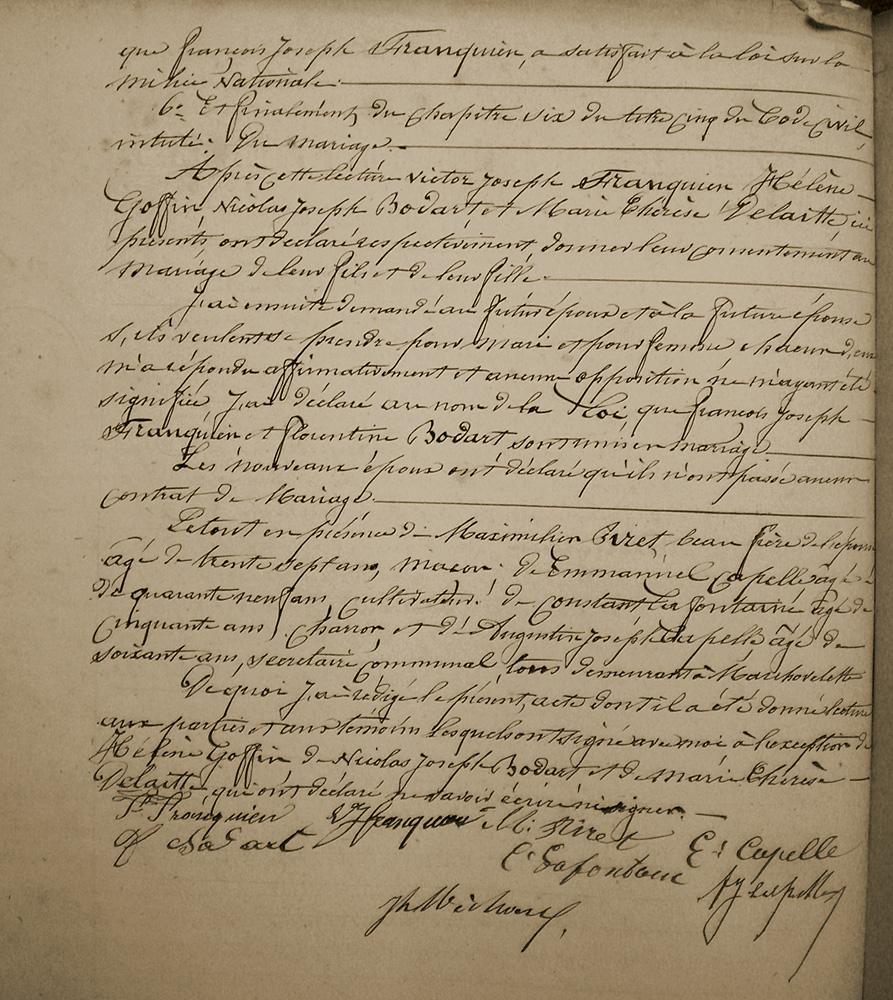 que françois Joseph Franquien, a satisfait à la loi sur la
milice Nationale.
6° Et finalement, du chapitre six du titre cinq du Code Civil,
intitulé: Du mariage.
Après cette lecture Victor Joseph Franquien Hélène
Goffin, Nicolas Joseph Bodart et Marie Thérèse Delaitte, ici
présents, ont déclaré respectivement donner leur consentement au
mariage de leur fils et de leur fille.
J,ai ensuite demandé au futur époux et à la future épouse
s,ils veulent se prendre pour mari et pour femme, chacun d,eux
m'a répondu affirmativement et aucune opposition ne m'ayant été
signifiée J,ai déclaré au nom de la loi que françois Joseph
Franquien et florentine Bodart sont unis en mariage
Les nouveaux époux ont déclaré qu'ils n'ont passé aucun
contrat de Mariage
Le tout en présence de Maximilien Piret, beau frère de l'épouse
âgé de trente sept ans, macon: de Emmanuel Capelle âgé
de quarante neuf ans cultivateur: de constant Lafontaine âgé de
cinquante ans, charron et de Augustin Joseph Capelle âgé de
soixante ans, secretaire communal tous demeurant à Marchovelette
De quoi J,ai rédigé le présent, acte dont il a été donné lecture
aux parties et aux témoins lesquels ont signé avec moi à l'exception de
Hélène Goffin de Nicolas Joseph Bodart et de Marie Thérèse
Delaitte qui ont déclaré ne savoir écrire ni signer.
Franquien Franquien M. Piret
Bodart C. Lafontaine E. Capelle
A J Capelle